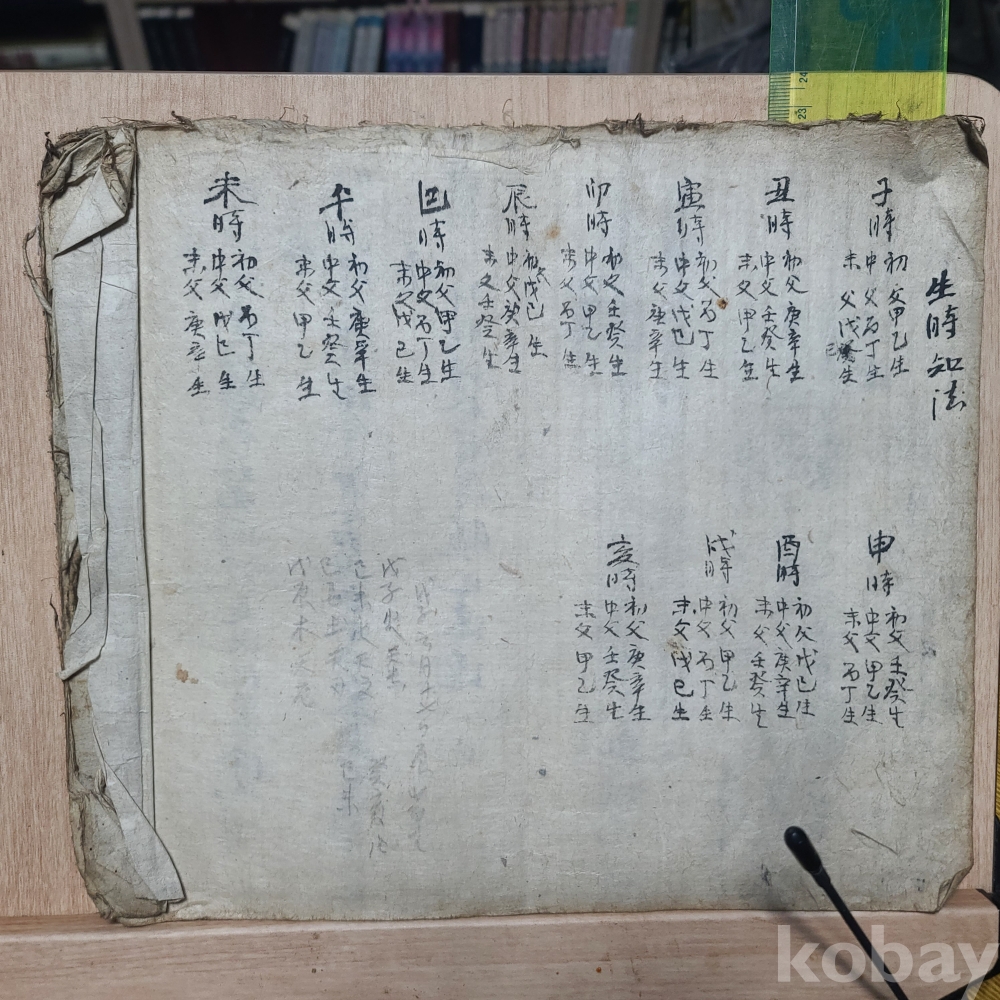 生時知法
子時
初父甲乙生
中父丙丁生
末父戊己生
丑時
初父庚辛生
中父壬癸生
末父甲乙生
寅時
初父丙丁生
中父戊己生
末父庚辛生
卯時
初父壬癸生
中父甲乙生
末父丙丁生
辰時
初父戊己生
中父庚辛生
末父壬癸生
巳時
初父甲乙生
中父丙丁生
末父戊己生
午時
初父庚辛生
中父壬癸生
末父甲乙生
未時
初父丙丁生
中父戊己生
末父庚辛生
申時
初父壬癸生
中父甲乙生
末父丙丁生
酉時
初父戊己生
中父庚辛生
末父壬癸生
戌時
初父甲乙生
中父丙丁生
末父戊己生
亥時
初父庚辛生
中父壬癸生
末父甲乙生
24
23
kobay